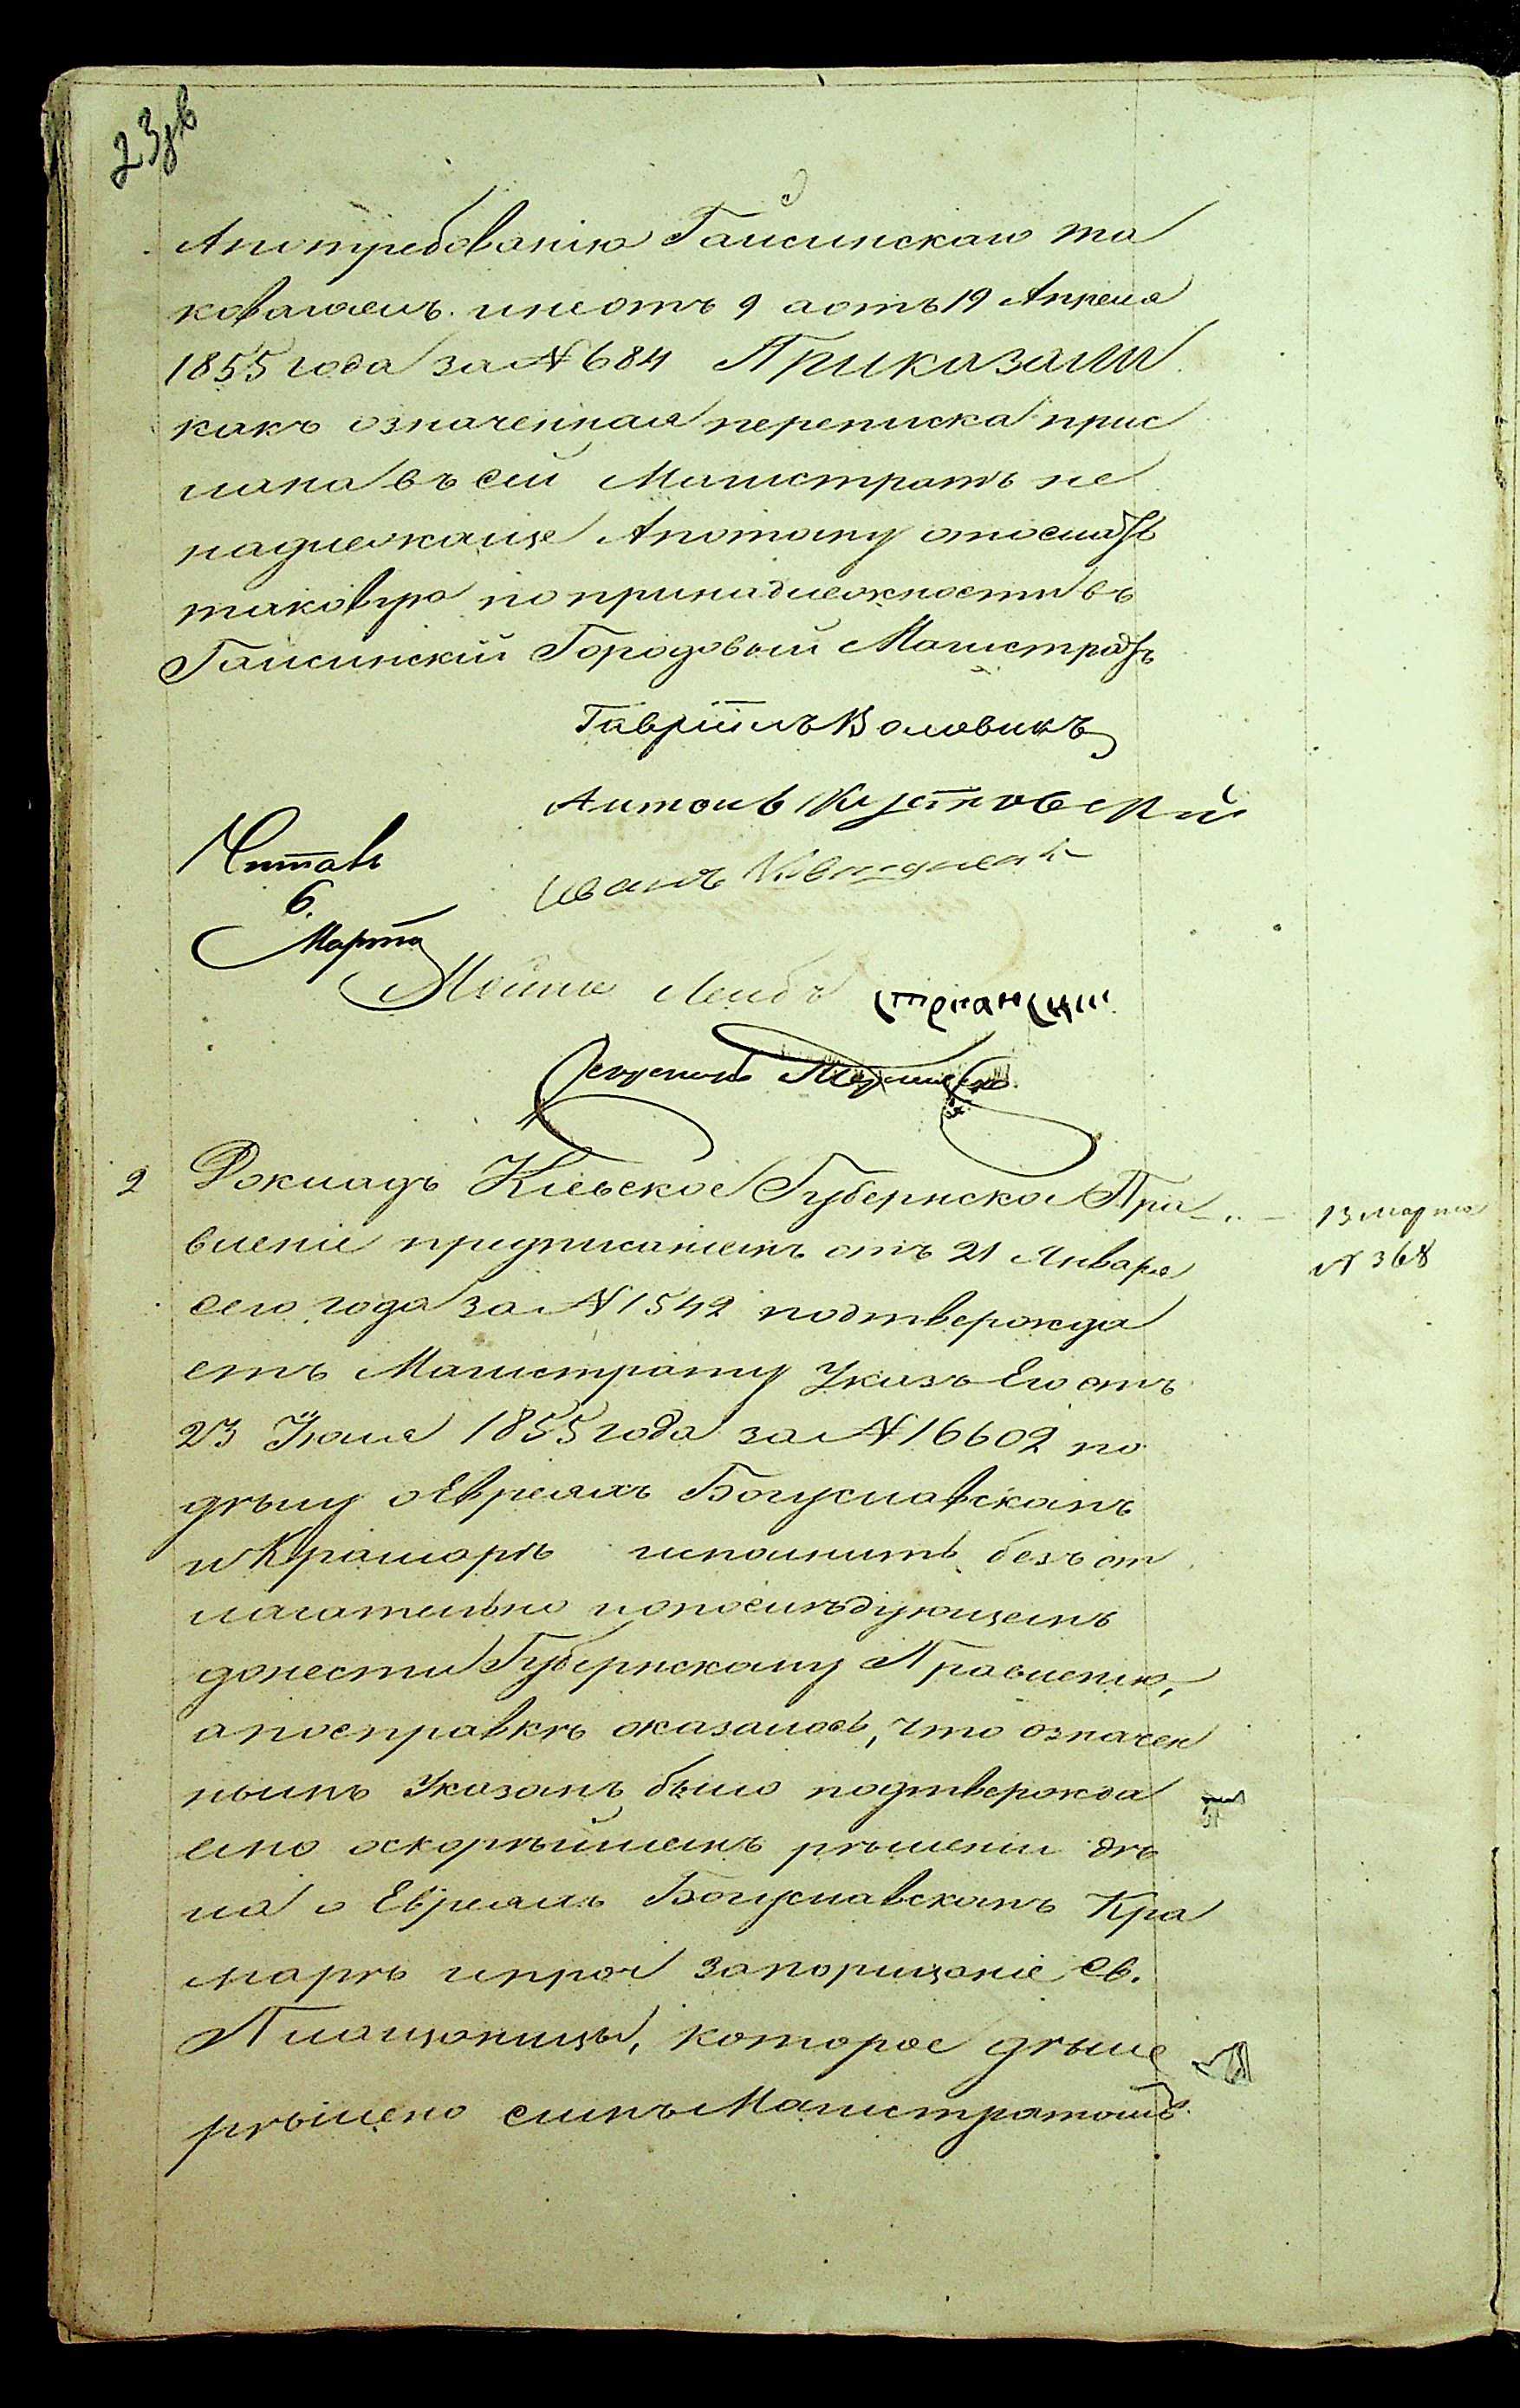 23 зв
Апотребованію Гайсинскаго та
коваго отъ 9 а отъ 19 Апреля
1855 года за № 684 Приказали
какъ означенная переписка прис
лана въ сей Магистратъ не
надлежаще Апотому отослать
таковую по принадлежности въ
Гайсинскій Городовый Магистратъ
Гавріилъ Воловикъ
Антонъ
Иванъ
Читалъ
6.
Марта
Лейбъ
2 Докладъ Кіевское Губернское Пра
вленіе предписаніемъ отъ 21 Января
сего года за № 1542 подтвержда
етъ Магистрату Указъ Его отъ
23 Іюля 1855 года за № 16602 по
дѣлу о Евреяхъ Богуславскомъ
и Крамарѣ исполнить безъ от
лагательно и опослѣдующемъ
донести Губернскому Правленію,
а посправкѣ оказалось, что означен
нымъ Указомъ было подтвержда
емо оскорѣйшемъ рѣшеніи дѣ
ла о Евреяхъ Богуславскомъ Кра
марѣ ипроч за порицаніе Св.
Плащаницы, которое дѣло
рѣшено симъ Магистратомъ
13 марта
№ 368